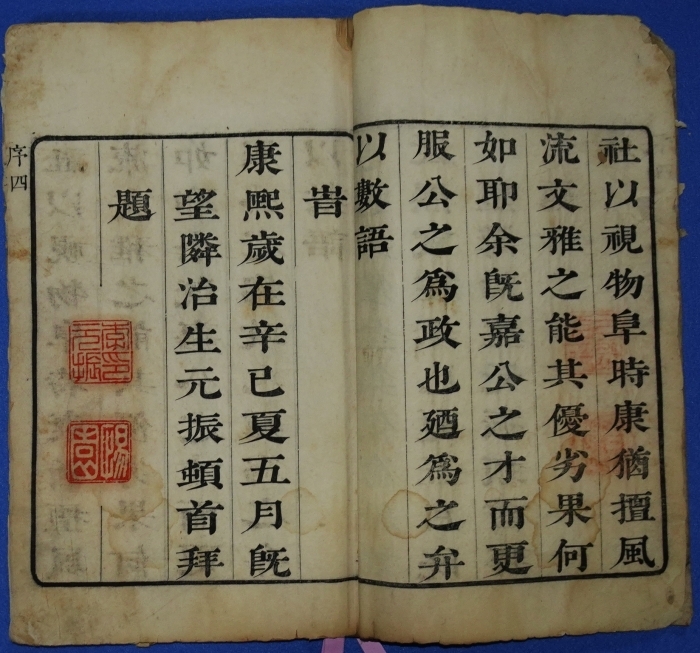 社以視物阜時康猶擅風
流文雅之能其優劣果何
如耶余旣嘉公之才而更
服公之爲政也廼爲之弁
以數語
旹
康熙歲在辛巳夏五月旣
望隣治生元振頓首拜
題
袁印元振
序四